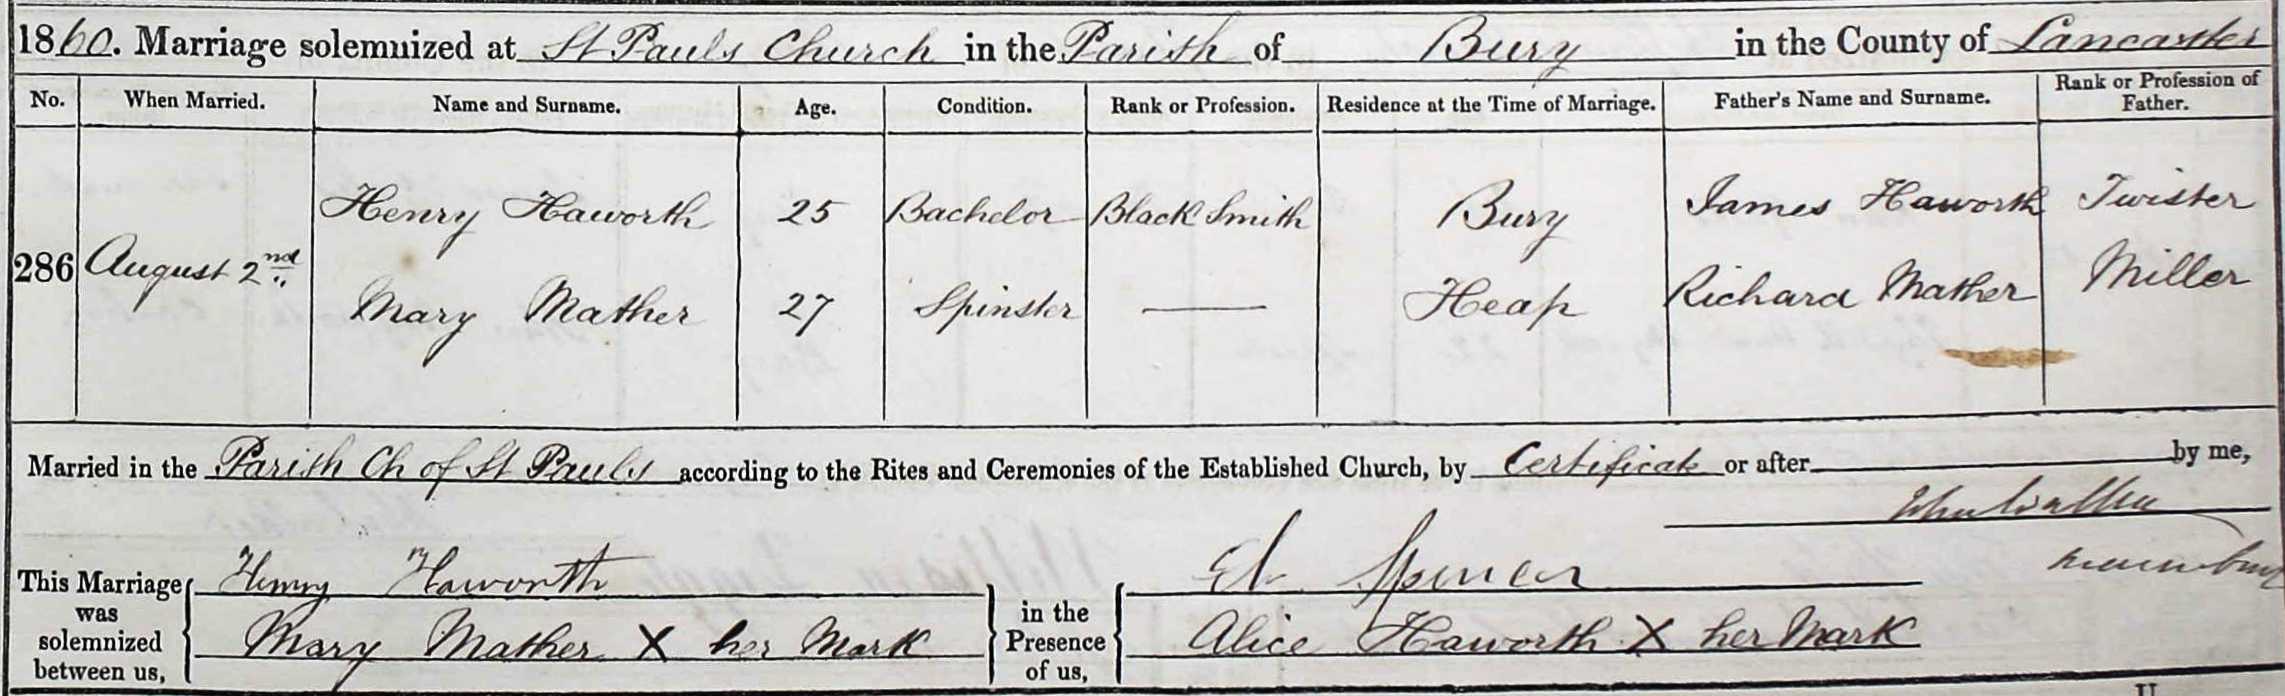 1860. Marriage solemnized at St Pauls Church in the Parish of Bury in the County of Lancaster
No. When Married. Name and Surname. Age. Condition. Rank or Profession. Residence at the Time of Marriage. Father's Name and Surname. Rank or Profession of Father.
286 August 2nd Henry Haworth 25 Bachelor Black Smith Bury James Haworth Twister
Mary Mather 27 Spinster Heap Richard Mather Miller
Married in the Parish Ch of St Pauls according to the Rites and Ceremonies of the Established Church, by Certificate or after by me,
This Marriage was solemnized between us, Henry Haworth in the Presence of us, Spencer
Mary Mather X her Mark Alice Haworth X her Mark
U